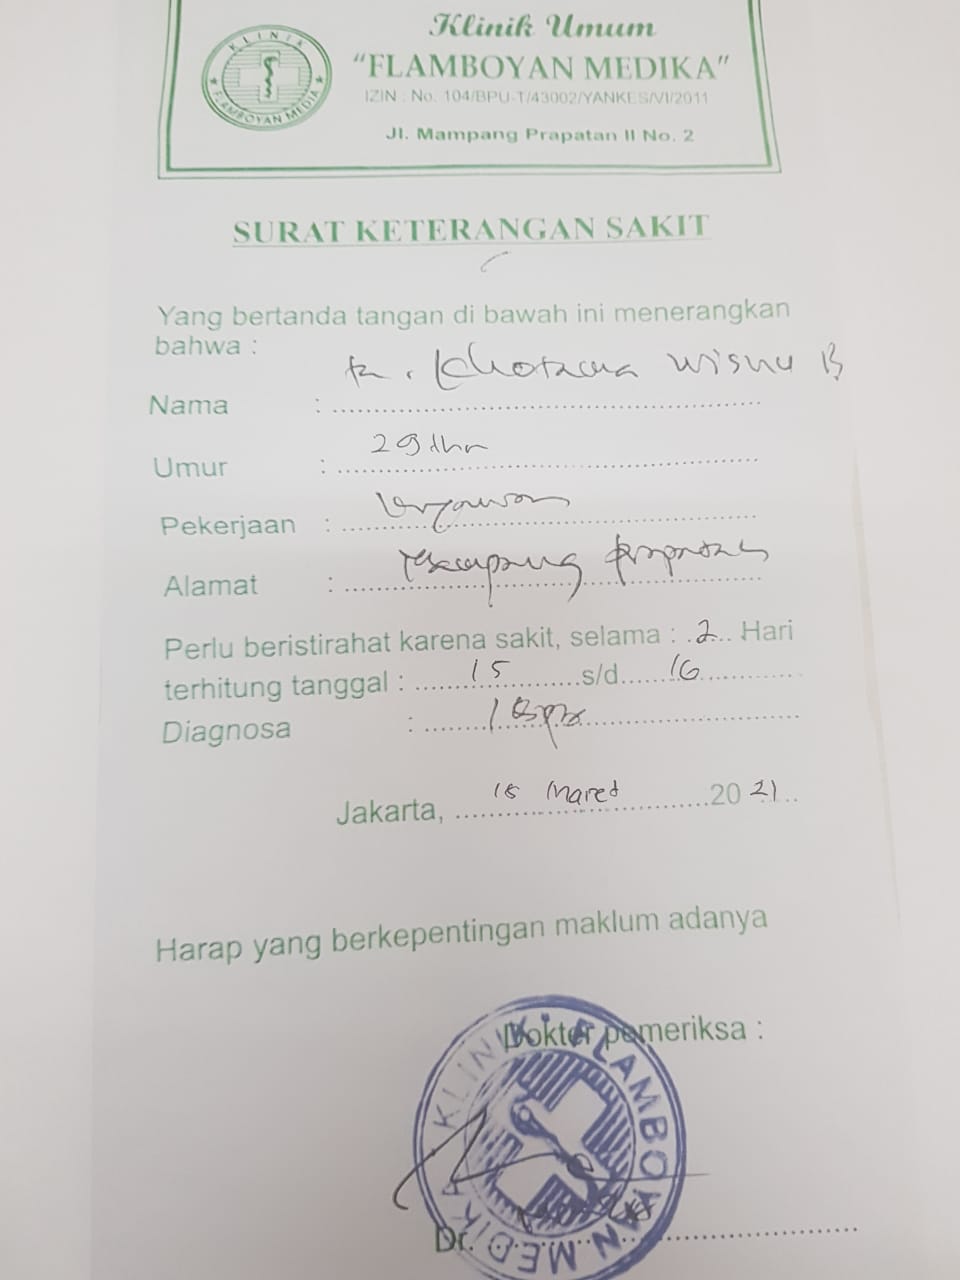 KLINIK
FLAMBOYAN MEDIA
Klinik Umum
"FLAMBOYAN MEDIKA"
IZIN : No. 104/BPU-T/43002/YANKES/VI/2011
Jl. Mampang Prapatan II No. 2
SURAT KETERANGAN SAKIT
Yang bertanda tangan di bawah ini menerangkan
bahwa :
Nama : wisnu B
Umur : 29 thn
Pekerjaan : karyawan
Alamat : Mampang prapatan
Perlu beristirahat karena sakit, selama : 2 Hari
terhitung tanggal : 15 s/d 16
Diagnosa :
Jakarta, 15 Maret 2021
Harap yang berkepentingan maklum adanya
Dokter pemeriksa :
KLINIK FLAMBOYAN MEDIKA
Dr.